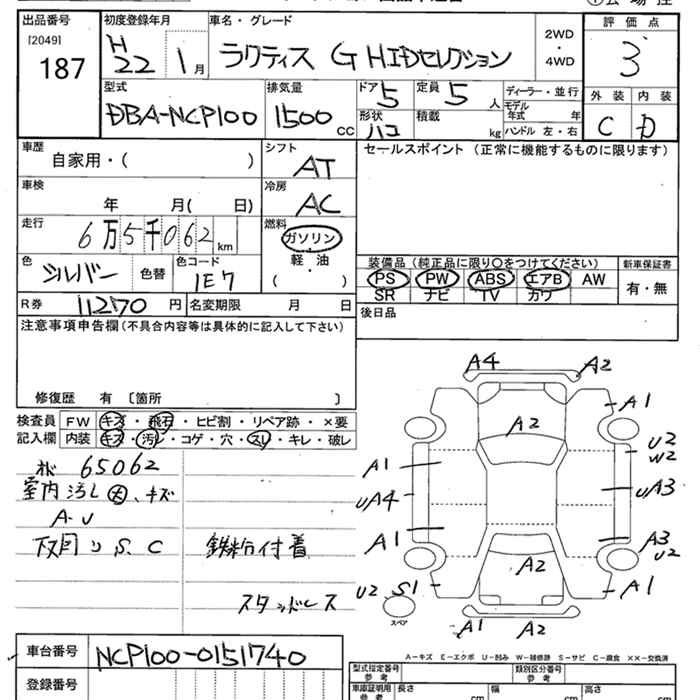 出品番号 初度登録年月 車名・グレード 評価点
[2049] 187 H22 1月 ラクティス G HIDセレクション 2WD・4WD 3
型式 排気量 ドア 5 定員 5人 ディーラー・並行 外装 内装
DBA-NCP100 1500cc 形状 ハコ 積載 kg モデル年式 年 ハンドル 左・右 C D
車歴 自家用・( ) シフト AT セールスポイント (正常に機能するものに限ります)
車検 年 月( 日) 冷房 AC
走行 6万5千062km 燃料 ガソリン
軽油・
( )
色 シルバー 色替 色コード 1E7
装備品(純正品に限り○をつけてください) 新車保証書
PS PW ABS エアB AW 有・無
SR ナビ TV カワ
R券 11270円 名変期限 月 日 後日品
注意事項申告欄(不具合内容等は具体的に記入して下さい)
修復歴 有 〔箇所 〕
検査員 FW キズ・飛石・ヒビ割・リペア跡・×要
記入欄 内装 キズ・汚レ・コゲ・穴・スレ・キレ・破レ
65062
室内汚し大、キズ
A・U
下回りS、C 鉄粉付着
スタッドレス
A4 A2
A1
A2
U2
W2
A1
UA4 UA3
A1 A3
U2
A2
U2 S1 A1
スペア
A1 A2
A-キズ E-エクボ U-凹み W-補修跡 S-サビ C-腐食 ××-交換済
車台番号 NCP100-0151740
登録番号
型式指定番号 参考 類別区分番号 参考
車庫証明用 参考 長さ cm 幅 cm 高さ cm